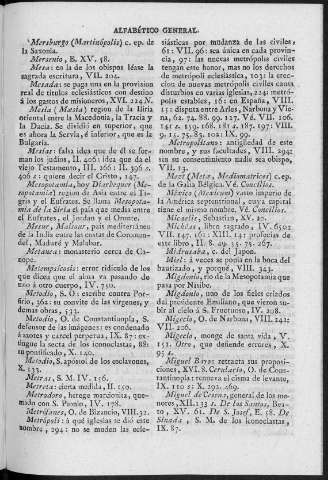 ALFABÉTICO GENERAL
Mersburgo (Martinópolis) c. ep. de
la Saxonia.
Mersenio, E. XV. 58.
Mesa: en la de los obispos léase la
sagrada escritura, VII. 204.
Mesada: se paga una en la provision
real de títulos eclesiásticos con destino
á los gastos de misioneros, XVI. 224 N.
Mesia (Masia) region de la Iliria
oriental entre la Macedonia, la Tracia y
la Dacia. Se dividió en superior, que
es ahora la Servia, é inferior, que es la
Bulgaria.
Mesías: falsa idea que de él se forman
los judíos, II. 406: idea que da el
viejo Testamento, III. 266: II. 396 s.
406 s.: quiere decir el Cristo, 147.
Mesopotamia, hoy Diarbequer (Mesopotamia)
region de Asia entre el Tigris
y el Eufrates. Se llama Mesopotamia
de la Siria el pais que media entre
el Eufrates, el Jordan y el Oronte.
Messur, Maissur, pais mediterráneo
de la India entre las costas de Coromandel,
Maduré y Malabar.
Metanea: monasterio cerca de Canope.
Metempsicosis: error ridículo de los
que dicen que el alma va pasando de
uno á otro cuerpo, IV. 750.
Metodio, S. O: escribe contra Porfirio,
362: su convite de las vírgenes, y
demas obras, 533.
Metodio, O. de Constantinopla, S.
defensor de las imágenes: es condenado
á azotes y carcel perpetua, IX. 87: extingue
la secta de los iconoclastas, 88:
su pontificado, X. 140.
Metodio, S. apóstol de los esclavones,
X. 133.
Metras, S. M. IV. 156.
Metreta: cierta medida, II. 150.
Metrodoro, herege marcionita, quemado
con S. Pionio, IV. 178.
Metrófanes, O. de Bizancio, VIII. 32.
Metrópoli: á qué iglesias se dió este
nombre, 294: no se muden las eclesiásticas
por mudanza de las civiles,
61: VII. 96: sea única en cada provincia,
97: las nuevas metrópolis civiles
tengan este honor, mas no los derechos
de metrópoli eclesiástica, 103: la ereccion
de nuevas metrópolis civiles causa
disturbios en varias iglesias, 224: metrópolis
estables, 16: en España, VIII.
15: disputa entre Arles, Narbona y Viena,
62. 74. 88. 99. 127. Vé VII. 106.
141 s. 159. 168. 181 s. 187. 197: VIII.
9. 15. 75. 83. 102: IX. 99.
Metropolitano: antigüedad de este
nombre, y sus facultades, VIII. 294:
sin su consentimiento nadie sea obispo,
VII. 13.
Metz (Meta, Mediomatrices) c. ep.
de la Galia Bélgica. Vé Concilios.
México (Mexicum) vasto imperio de
la América septentrional, cuya capital
tiene el mismo nombre. Vé Concilios.
Micaelis, Sebastian, XV. 20.
Michêas, libro sagrado, IV. 650:
VII. 147. 161: XIII. 14: profecías de
este libro, II. 8. 49. 35. 75. 267.
Midruzaba, c. del Japon.
Miel: á veces se podia en la boca del
bautizado, y porqué, VIII. 343.
Migdonio, rio de la Mesopotamia que
pasa por Nísibe.
Migdonio, uno de los fieles criados
del presidente Emiliano, que vieron subir
al cielo á S. Fructuoso, IV. 208.
Migecio, O. de Narbona, VIII. 242:
VII. 206.
Migecio, monge de santa vida, V.
153. Otro, que defiende errores, X.
95 s.
Miguel Bayo retracta sus proposiciones,
XVI. 8. Cerulario, O. de Constantinopla:
renueva el cisma de levante,
IX. 110 s.: X. 292. 269.
Miguel de Cesena, general de los menores,
XII. 133 s. De los Santos, Beato,
XV. 61. De S. Josef, E. 58. De
Sinada, S. M. de los iconoclastas,
IX. 87.